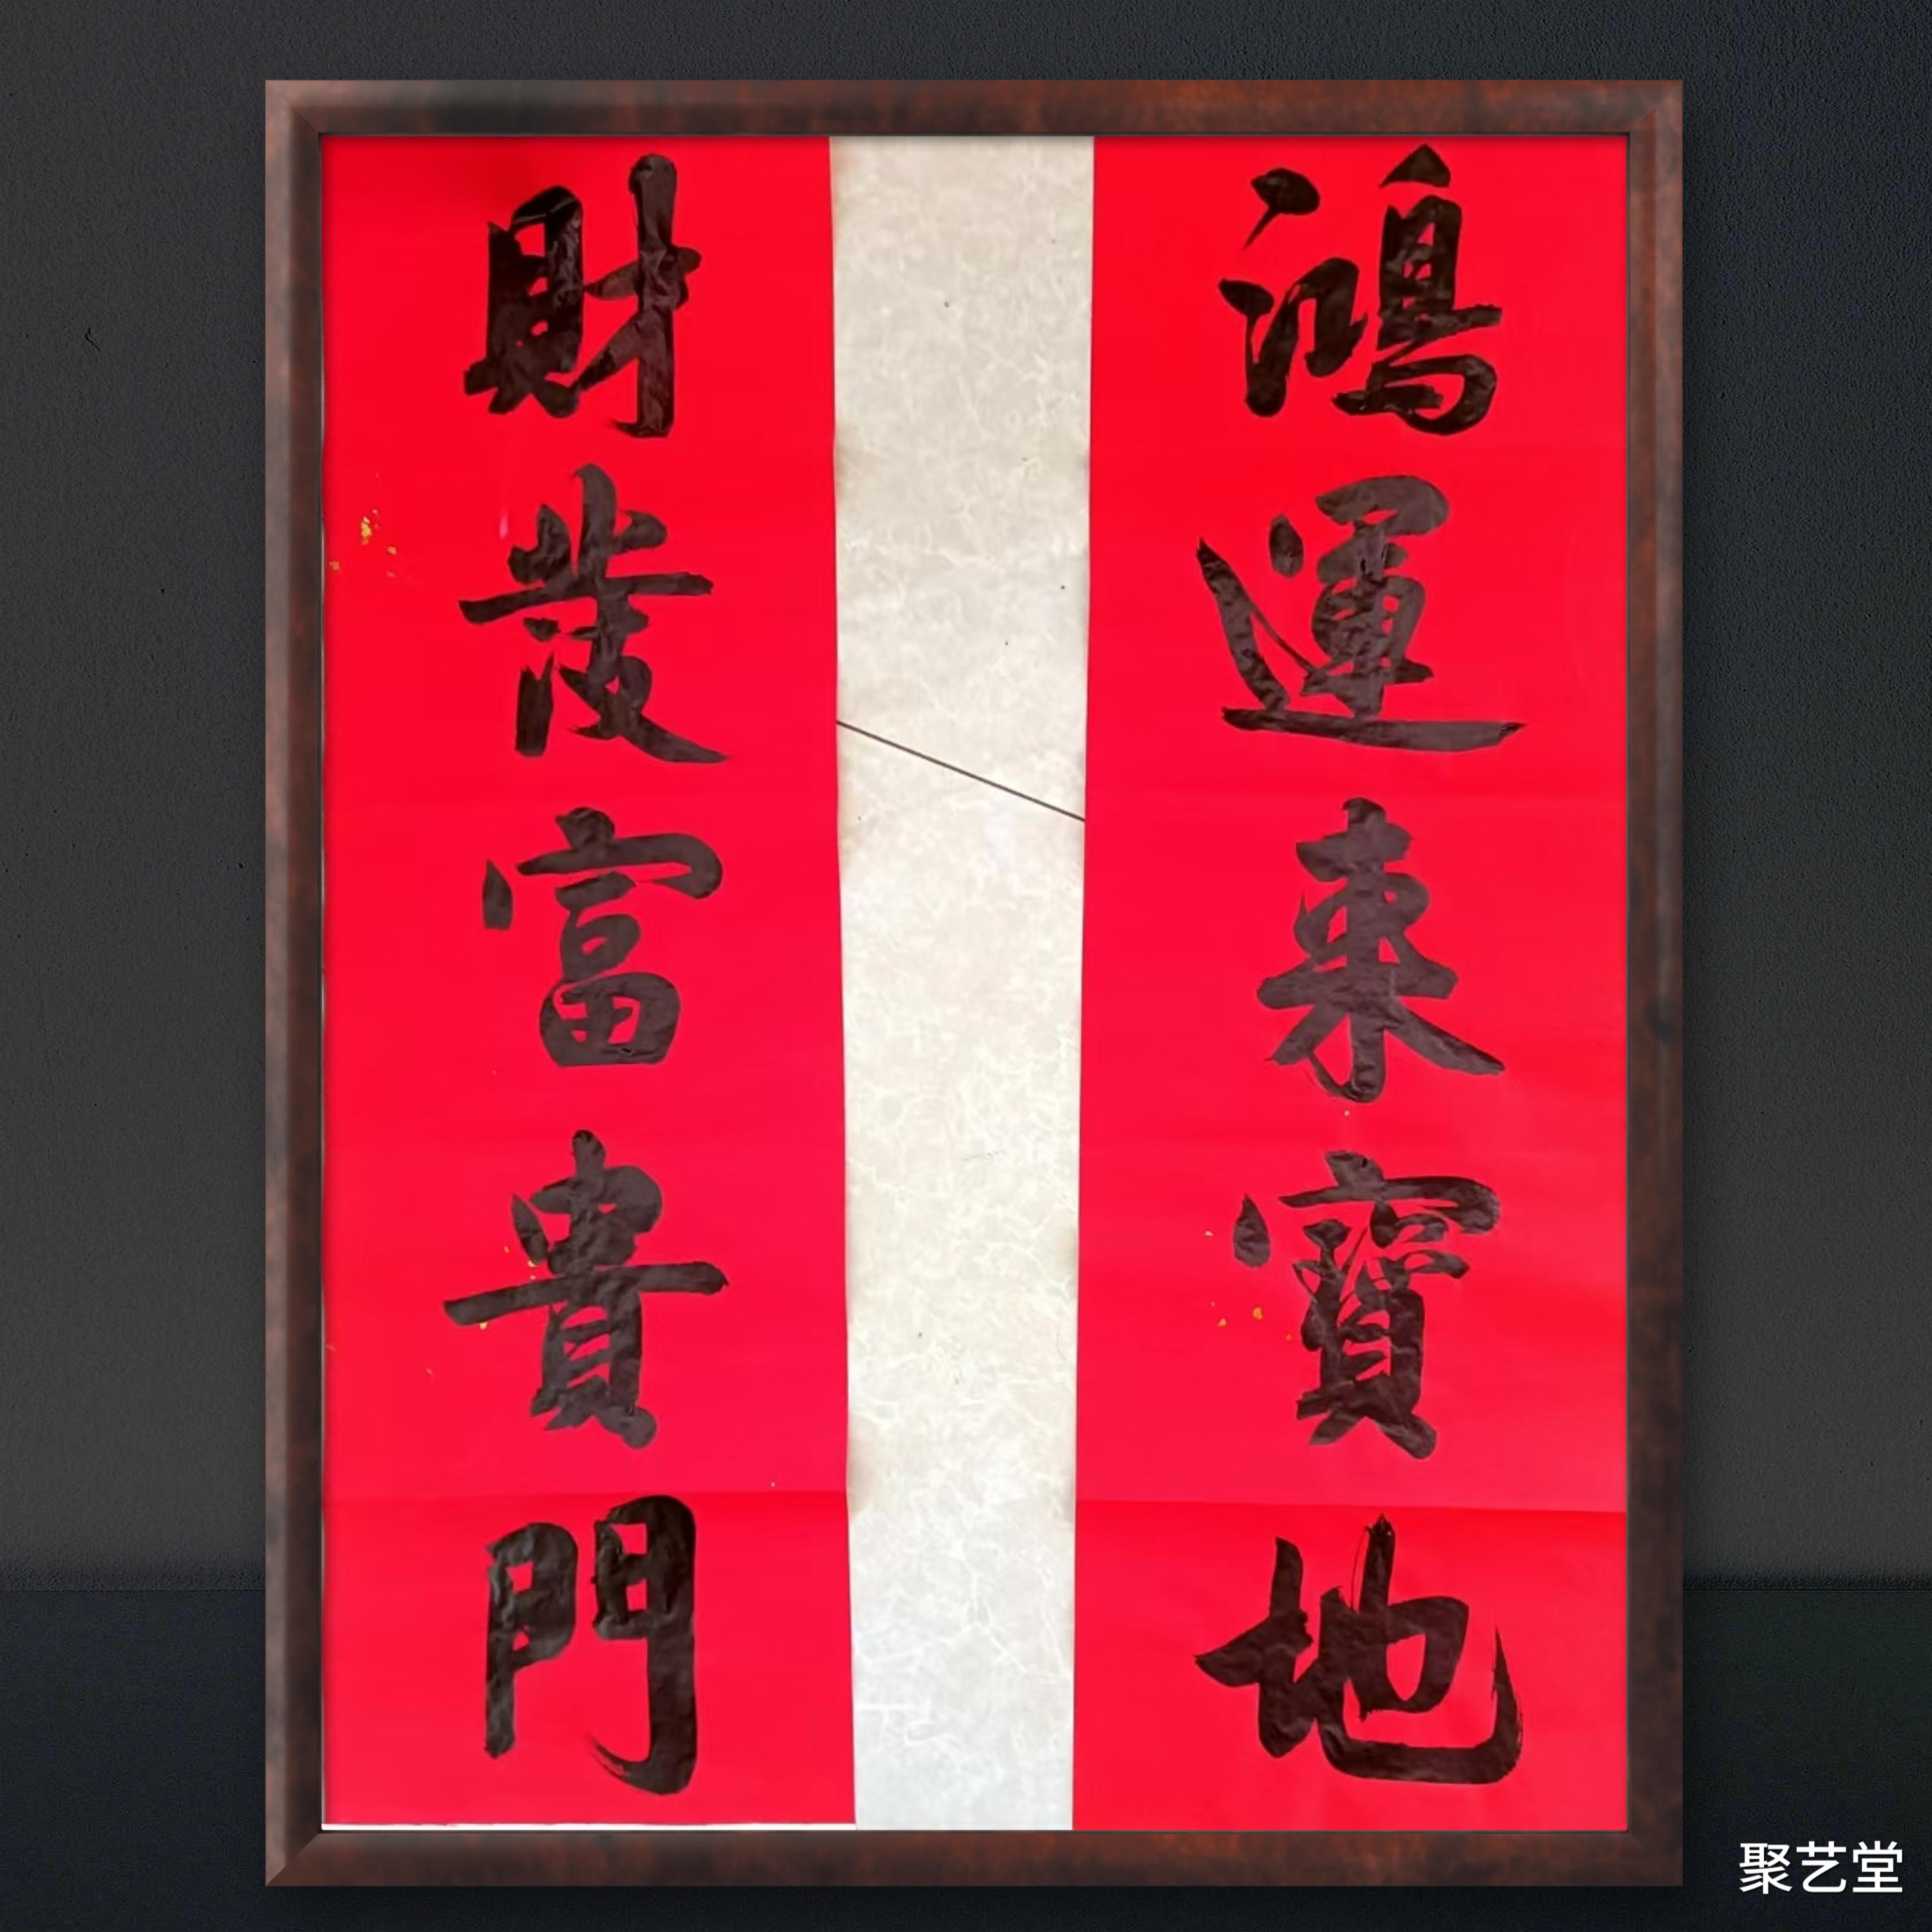 鴻運来寶地
財發富貴門
聚艺堂